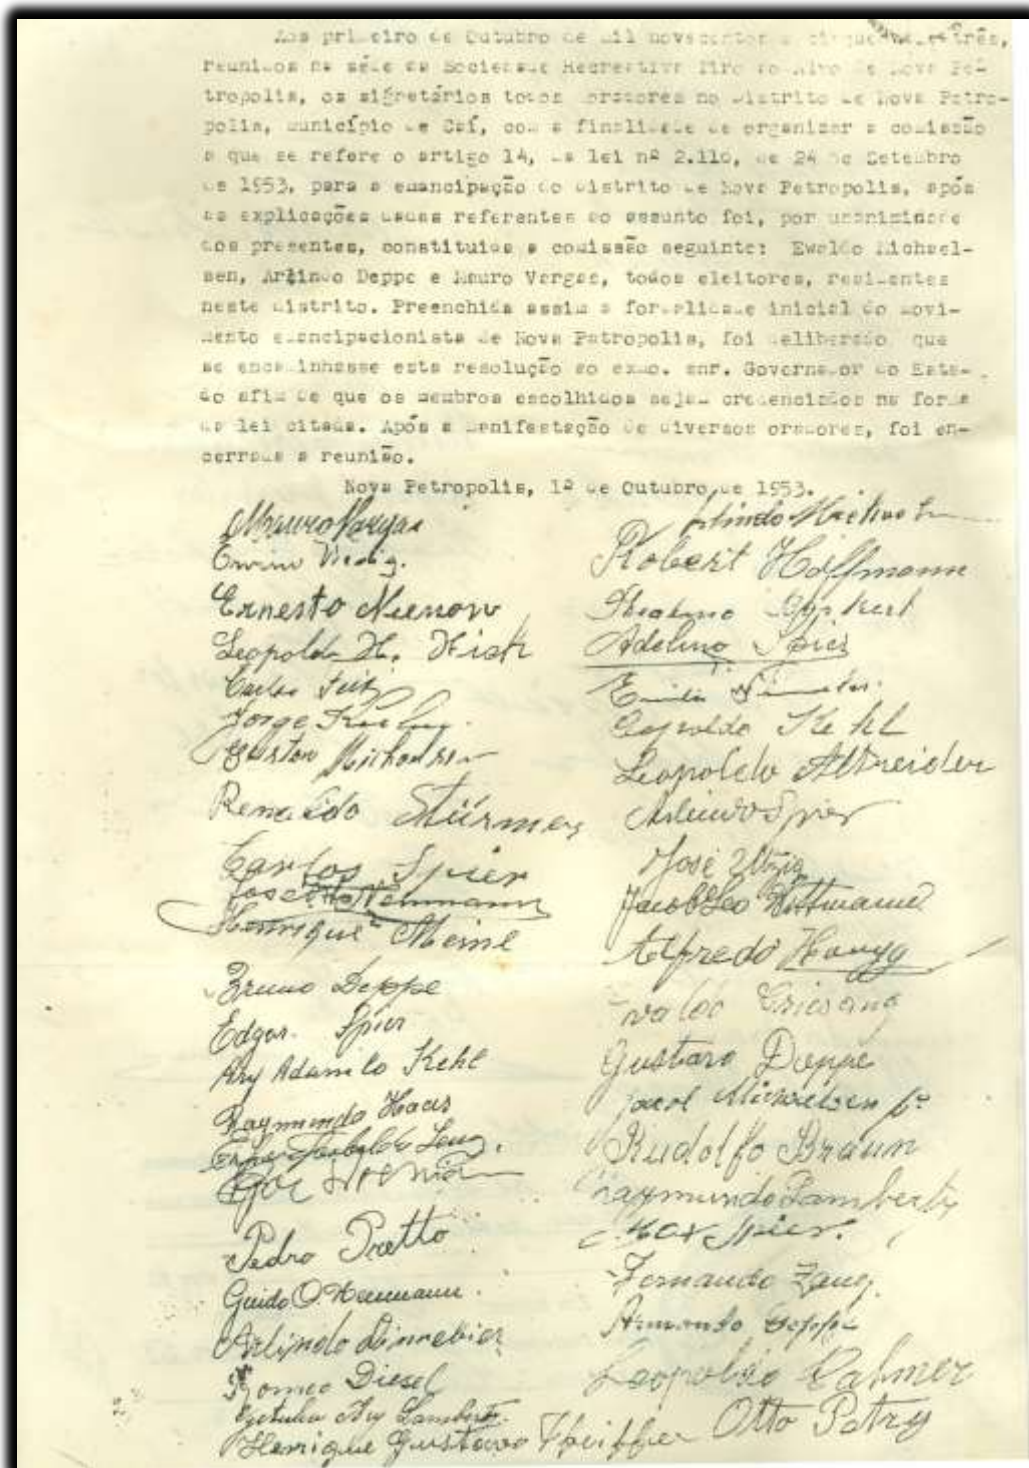 Aos primeiro de Outubro de mil novecentos e cinquenta e três,
reunidos na séde da Sociedade Recreativa Tiro ao Alvo de Nova Pe-
tropolis, os signatários todos moradores no distrito de Nova Petro-
polis, município de Caí, com a finalidade de organizar a comissão
a que se refere o artigo 14, da lei nº 2.116, de 24 de Setembro
de 1953, para a emancipação do distrito de Nova Petropolis, após
as explicações dadas referentes ao assunto foi, por unanimidade
dos presentes, constituida a comissão seguinte: Ewaldo Michael-
sen, Arlindo Deppe e Mauro Vargas, todos eleitores, residentes
neste distrito. Preenchida assim a formalidade inicial do movi-
mento emancipacionista de Nova Petropolis, foi deliberado que
se encaminhasse esta resolução ao exmo. snr. Governador do Esta-
do afim de que os membros escolhidos sejam credenciados na forma
da lei citada. Após a manifestação de diversos oradores, foi en-
cerrada a reunião.
Nova Petropolis, 1º de Outubro de 1953.
Mauro Vargas
Erwino
Ernesto Nienow
Leopoldo H.
Carlos
Jorge
Gaston Michaelsen
Renaldo Stürmer
Carlos Spier
José Neumann
Henrique Meine
Bruno Deppe
Edgar Spier
Ary Adamilo Kehl
Raymundo Haas
Pedro Pretto
Guido O. Neumann.
Arlindo Dinnebier
Romeo Diesel
Getulio Ary Lamberty
Henrique Gustavo Pfeiffer
Arlindo
Robert Hoffmann
Adelino Spier
Leopoldo Kehl
Leopoldo Altreider
Arlindo Spier
José
Jacob Leo Wittmann
Alfredo Hauyg
Gustavo Deppe
Jacob Michaelsen
Rudolfo Braun
Raymundo Lamberty
Max Spier.
Fernando Zang.
Armando Deppe
Leopoldo
Otto Petry